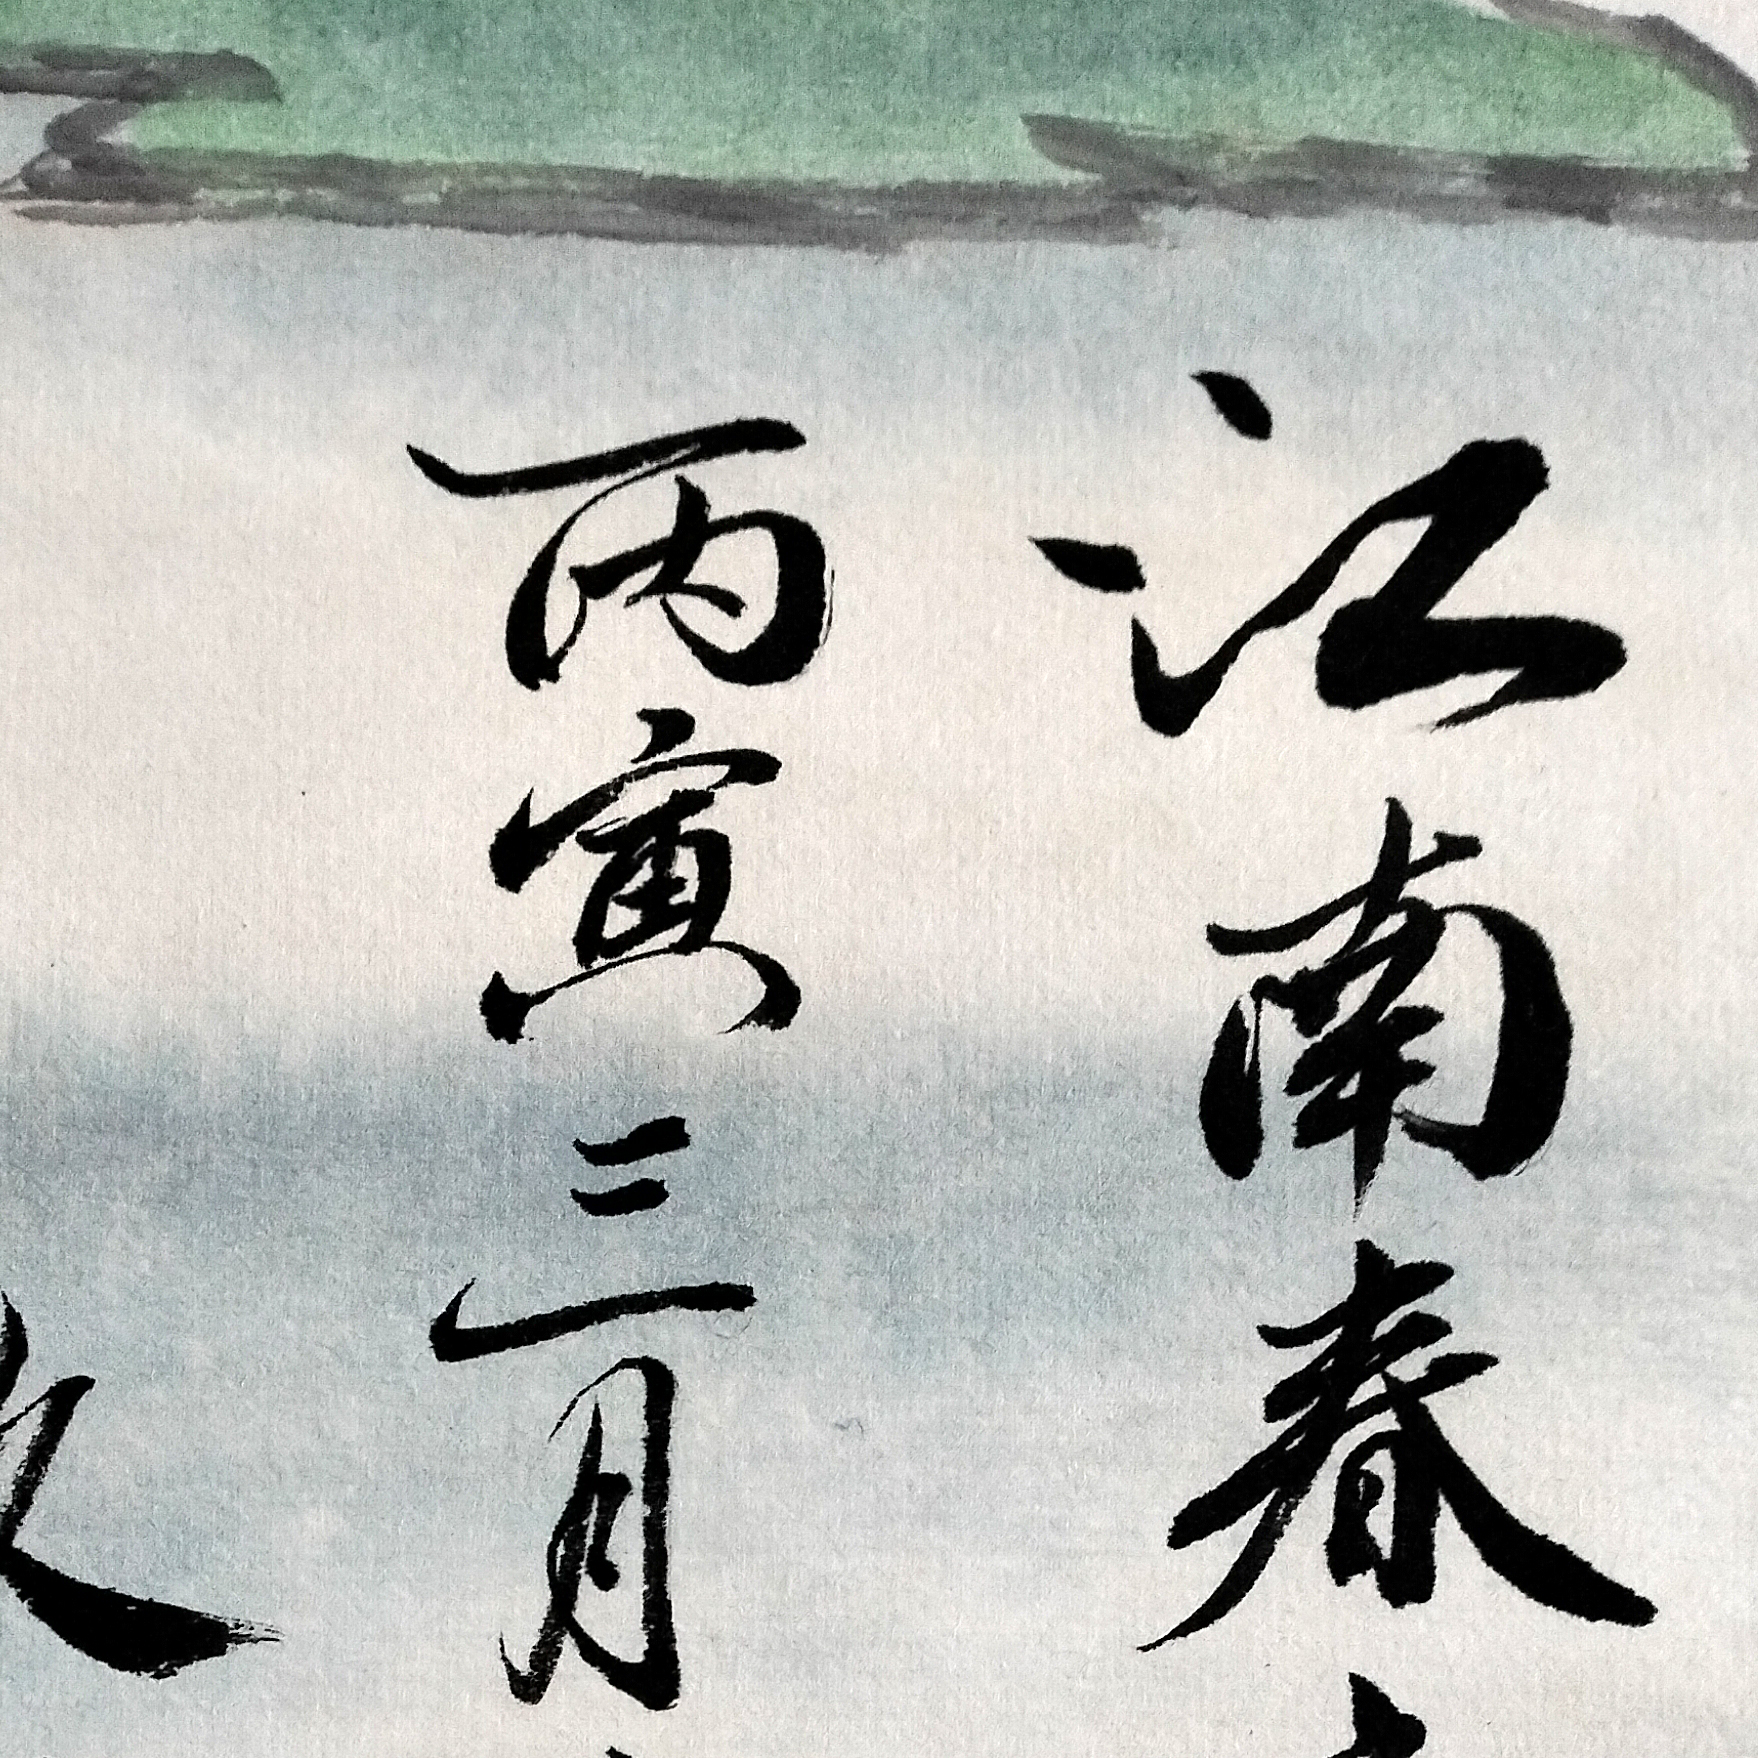 江南春
丙寅三月